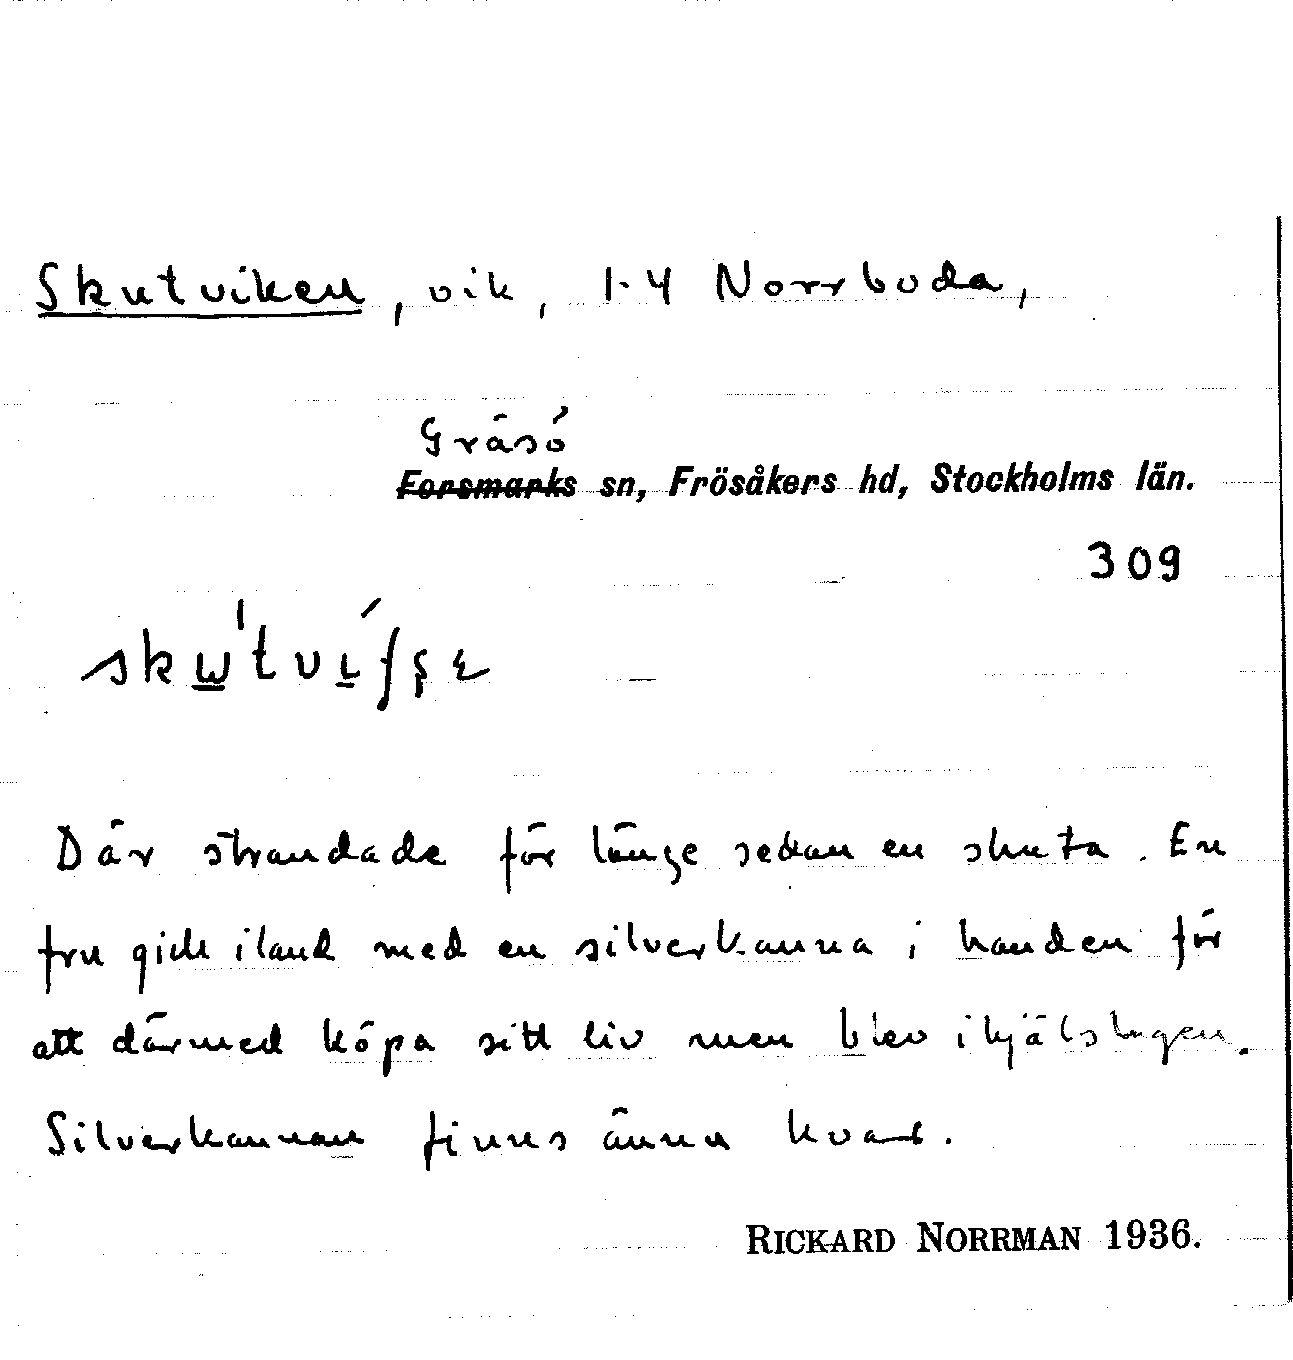 Skutviken, vik, 1-4 Norrboda,
Gräsö
Forsmarks sn, Frösåkers hd, Stockholms län.
309
Där strandade för länge sedan en skuta. En
fru gick iland med en silverkanna i handen för
att därmed köpa sitt liv men blev ihjälslagen.
Silverkannan finns ännu kvar.
RICKARD NORRMAN 1936.